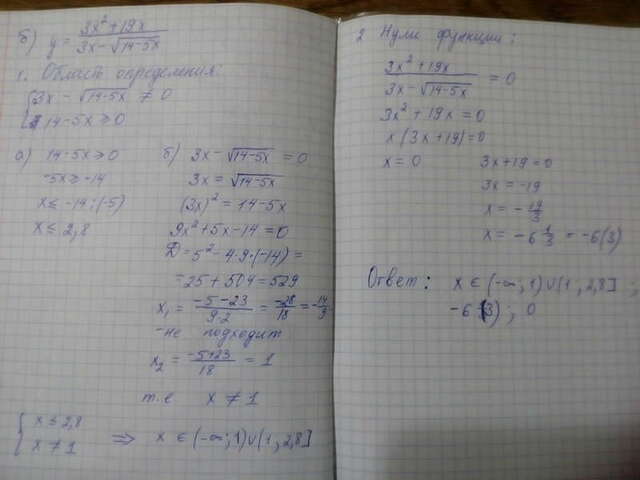 б) y = (3x² + 19x) / (3x - √(14-5x))
1. Область определения:
{ 3x - √(14-5x) ≠ 0
{ 14-5x ≥ 0
а) 14-5x ≥ 0
-5x ≥ -14
x ≤ -14:(-5)
x ≤ 2,8
б) 3x - √(14-5x) = 0
3x = √(14-5x)
(3x)² = 14-5x
9x² + 5x - 14 = 0
D = 5² - 4·9·(-14) =
= 25 + 504 = 529
x₁ = (-5-23)/(9·2) = -28/18 = -14/9
-не подходит
x₂ = (-5+23)/18 = 1
т.е x ≠ 1
{ x ≤ 2,8
{ x ≠ 1
⇒ x ∈ (-∞; 1) ∪ (1, 2,8]
2 Нули функции:
(3x² + 19x) / (3x - √(14-5x)) = 0
3x² + 19x = 0
x(3x+19) = 0
x = 0
3x+19 = 0
3x = -19
x = -19/3
x = -6 1/3 = -6(3)
Ответ: x ∈ (-∞; 1) ∪ (1, 2,8] ;
-6(3); 0